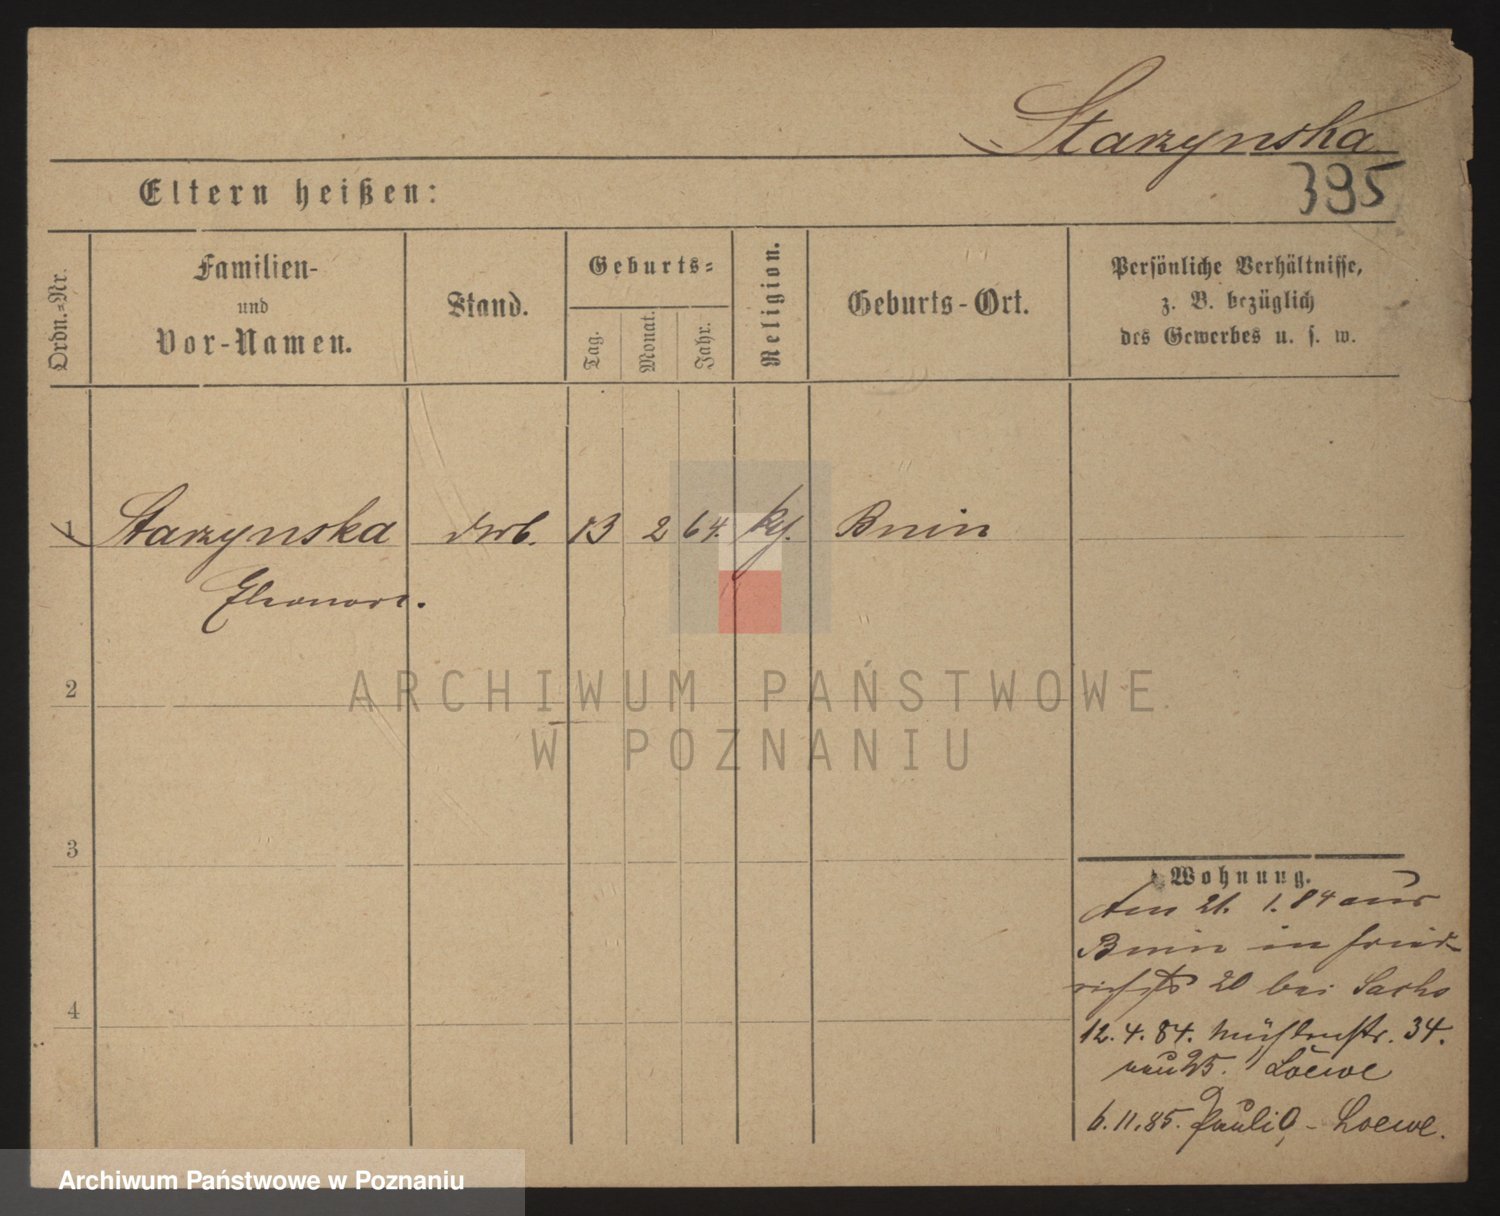 Starzynska
395
Eltern heißen:
Ordn.-Nr.
Familien-
und
Vor-Namen.
Stand.
Geburts-
Tag.
Monat.
Jahr.
Religion.
Geburts-Ort.
Persönliche Verhältnisse,
z. B. bezüglich
des Gewerbes u. s. w.
1 Starzynska 13 2 64. Bnin
Eleonore.
2
ARCHIWUM PAŃSTWOWE
W POZNANIU
3
4
Wohnung.
Am 21. 1. 84 aus
Bnin in Fried-
20 bei Sachs
12. 4. 84. Mühlenstr. 34.
neu 25. Loewe
6. 11. 85. Pauli - Loewe.
Archiwum Państwowe w Poznaniu